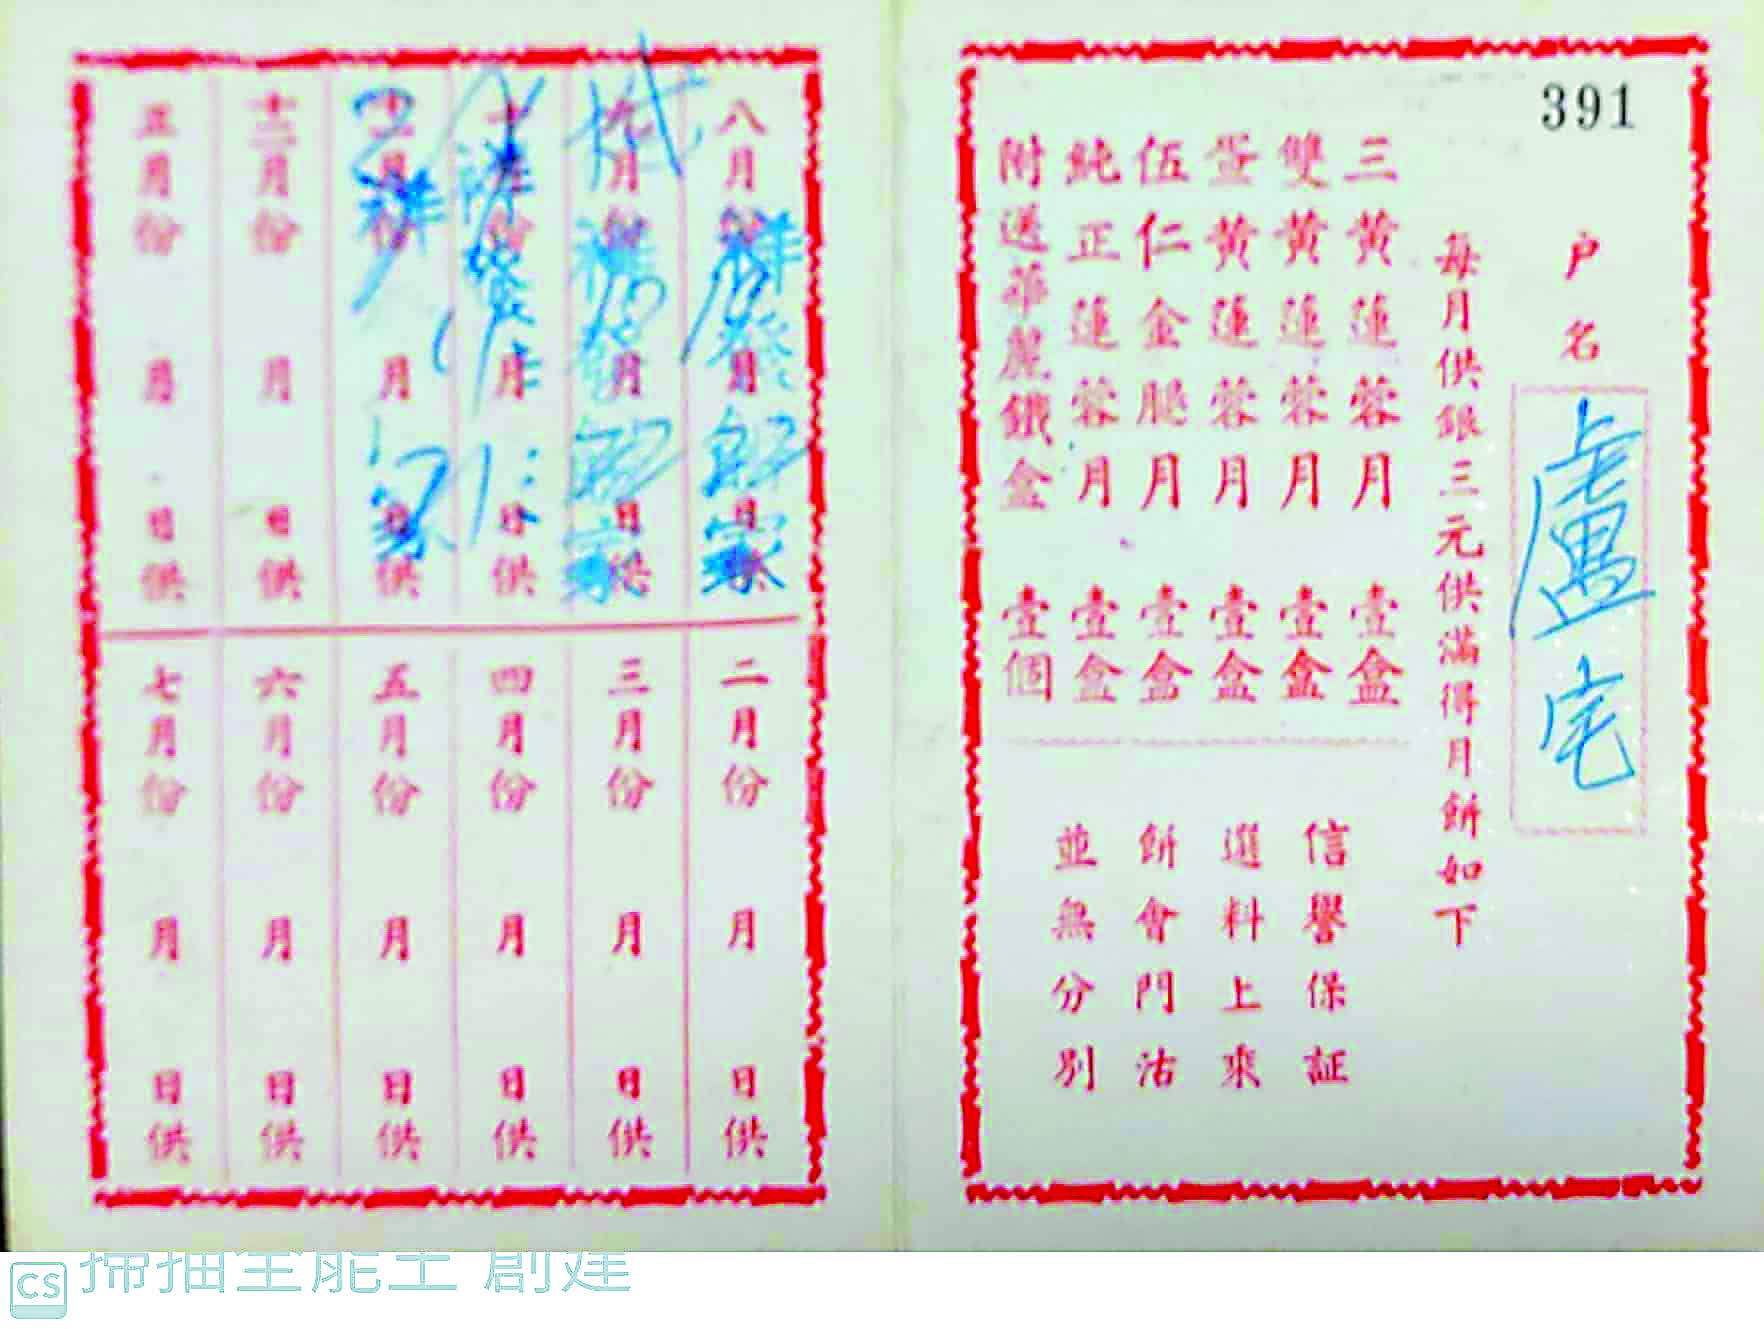 391
户名
盧宅
每月供銀三元供滿得月餅如下
三黃蓮蓉月 壹盒
雙黃蓮蓉月 壹盒
蛋黃蓮蓉月 壹盒
伍仁金腿月 壹盒
純正蓮蓉月 壹盒
附送華麗鐵盒 壹個
信譽保証
選料上來
餅會門沽
並無分別
八月份 月 日供
九月份 月 日供
十月份 月 日供
十一月份 月 日供
十二月份 月 日供
正月份 月 日供
二月份 月 日供
三月份 月 日供
四月份 月 日供
五月份 月 日供
六月份 月 日供
七月份 月 日供
CS 掃描全能王 創建